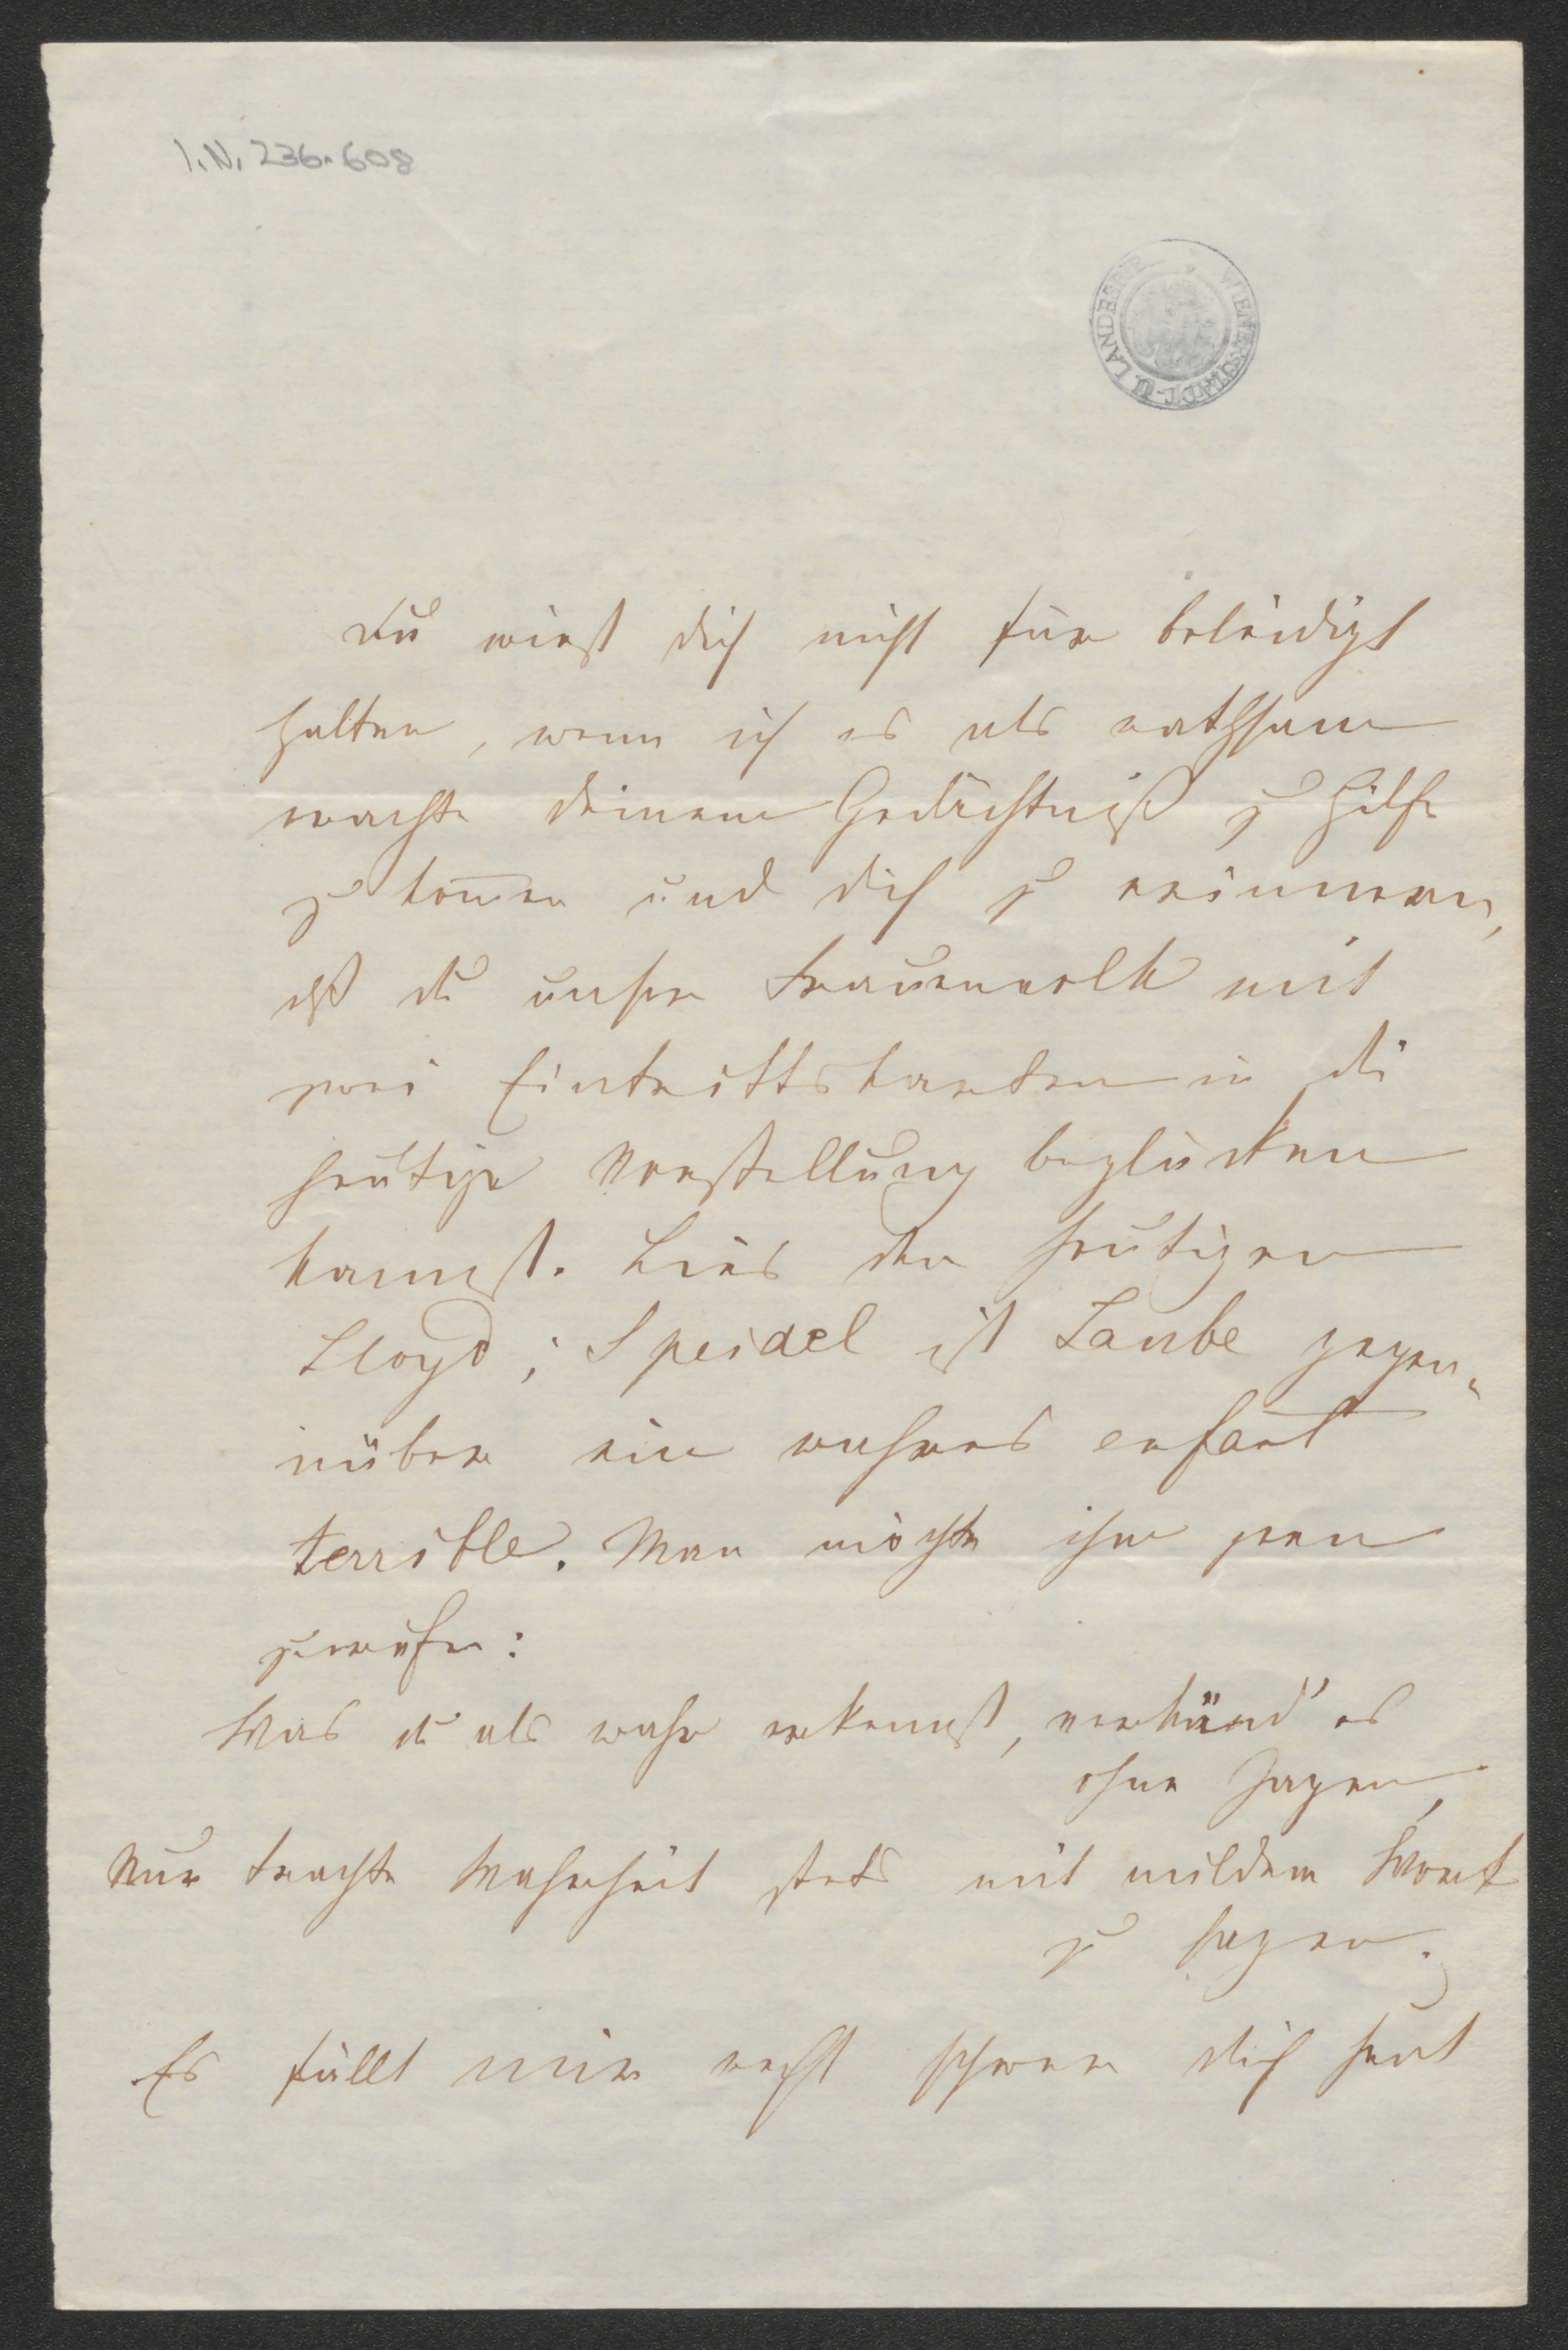 I.N. 236.608
WIENER STADT- U. LANDESBIB
Du wirst dich nicht für beleidigt
halten, wenn ich es als rathsam
erachte deinem Gedächtniß zu Hilfe
zu kom̅en und dich zu erinnern,
dß du unser Frauenvolk mit
zwei Eintrittskarten in die
heutige Vorstellung beglücken
kannst. Lies den heutigen
Lloyd; Speidel ist Laube gegen-
über ein wahres enfant
terrible. Man möchte ihm gern
zurufen:
Was du als wahr erkennst, verkünd' es
ohne Zagen,
Nur trachte Wahrheit stets mit mildem Wort
zu sagen.
Es fällt mir recht schwer dich heut